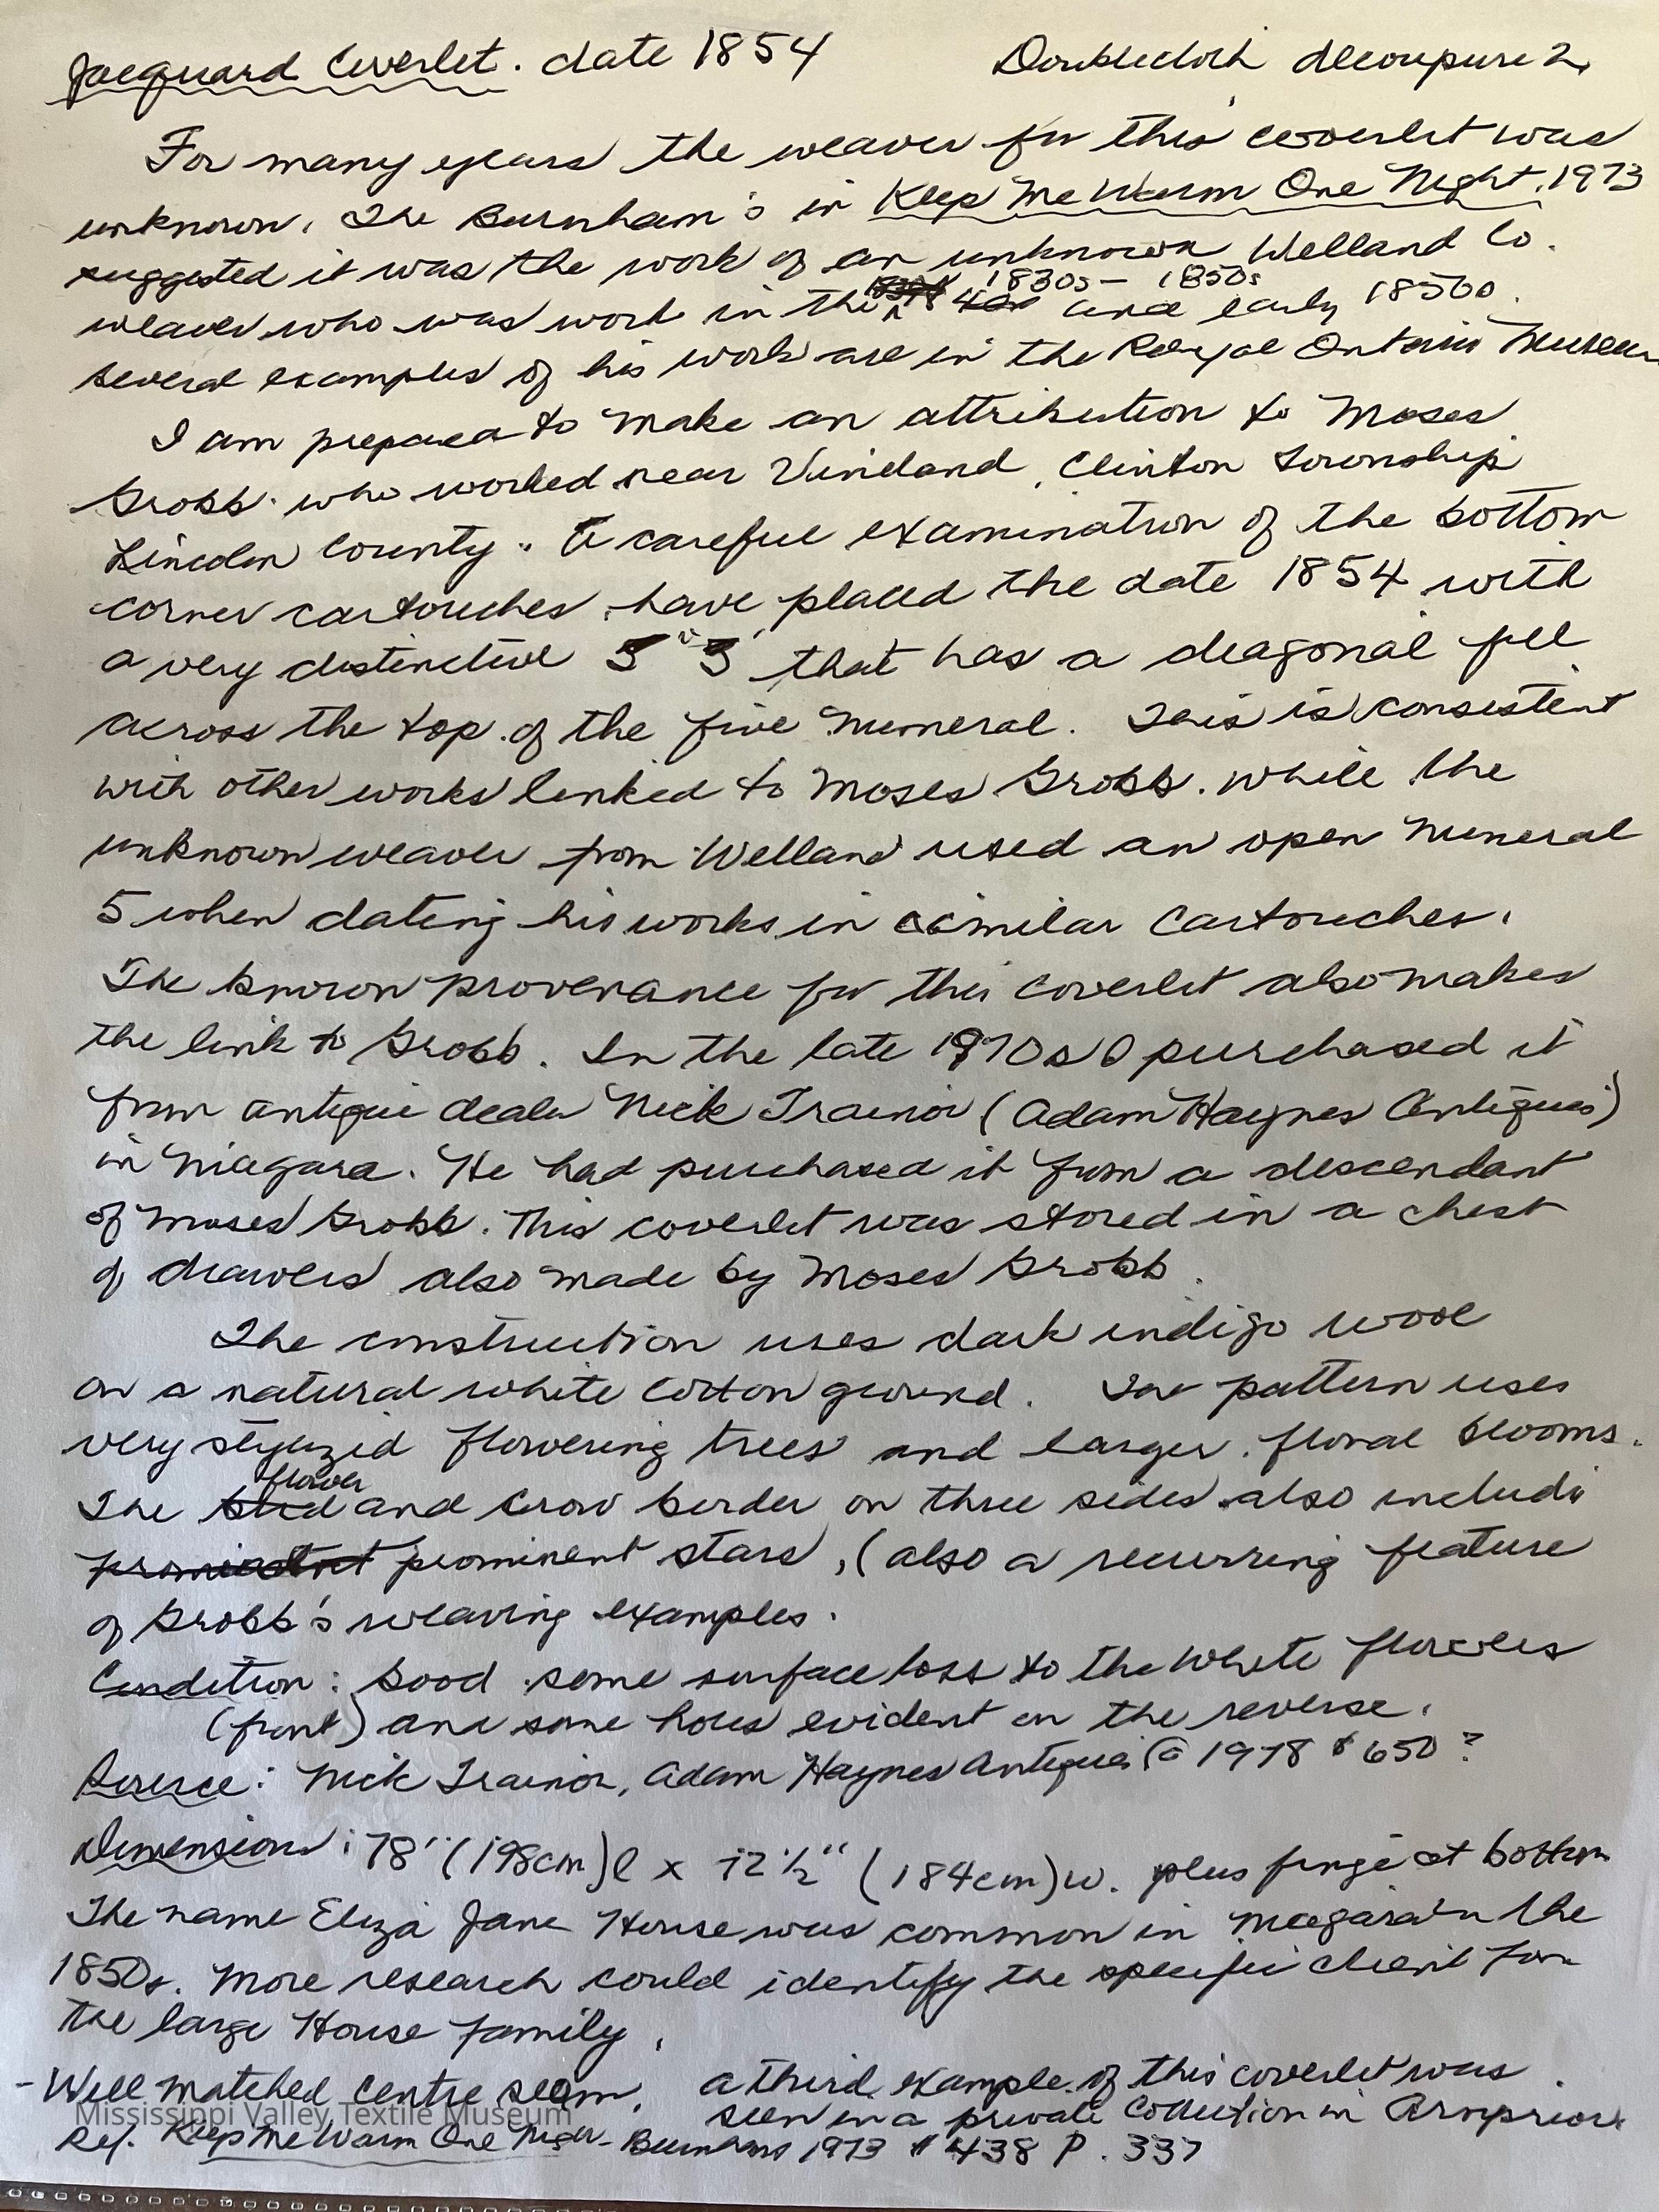 Jacquard Coverlet. date 1854 Doublecloth decoupure 2
For many years the weaver for this coverlet was
unknown. The Burnham's in Keep Me Warm One Night, 1973
suggested it was the work of an unknown Welland Co.
weaver who was work in the 1830s - 1850s and early 1850s.
Several examples of his work are in the Royal Ontario Museum
I am prepared to make an attribution to Moses
Grobb. who worked near Vineland, Clinton Township
Lincoln County. A careful examination of the bottom
corner cartouches, have placed the date 1854 with
a very distinctive 5 "5" that has a diagonal fill
across the top of the five numeral. This is consistent
with other works linked to Moses Grobb. while the
unknown weaver from Welland used an open numeral
5 when dating his works in similar cartouches.
The known provenance for this coverlet also makes
the link to Grobb. In the late 1970s I purchased it
from antique dealer Nick Trainor (Adam Haynes Antiques)
in Niagara. He had purchased it from a descendant
of Moses Grobb. This coverlet was stored in a chest
of drawers also made by Moses Grobb.
The construction uses dark indigo wool
on a natural white cotton ground. The pattern uses
very stylized flowering trees and larger floral blooms.
The flower and Crow border on three sides also include
prominent stars, (also a recurring feature
of Grobb's weaving examples.
Condition: Good some surface loss to the white flowers
(front) and some holes evident on the reverse.
Source: Nick Trainor, Adam Haynes Antiques @ 1978 $650?
Dimensions: 78" (198cm) l x 72 ½" (184cm) w. plus fringe at bottom
The name Eliza Jane House was common in Niagara in the
1850s. More research could identify the specific client from
the large House family.
- Well matched centre seam. a third example of this coverlet was
seen in a private collection in Arnprior.
Mississippi Valley Textile Museum
Ref. Keep Me Warm One Night - Burnhams 1973 #438 P. 337